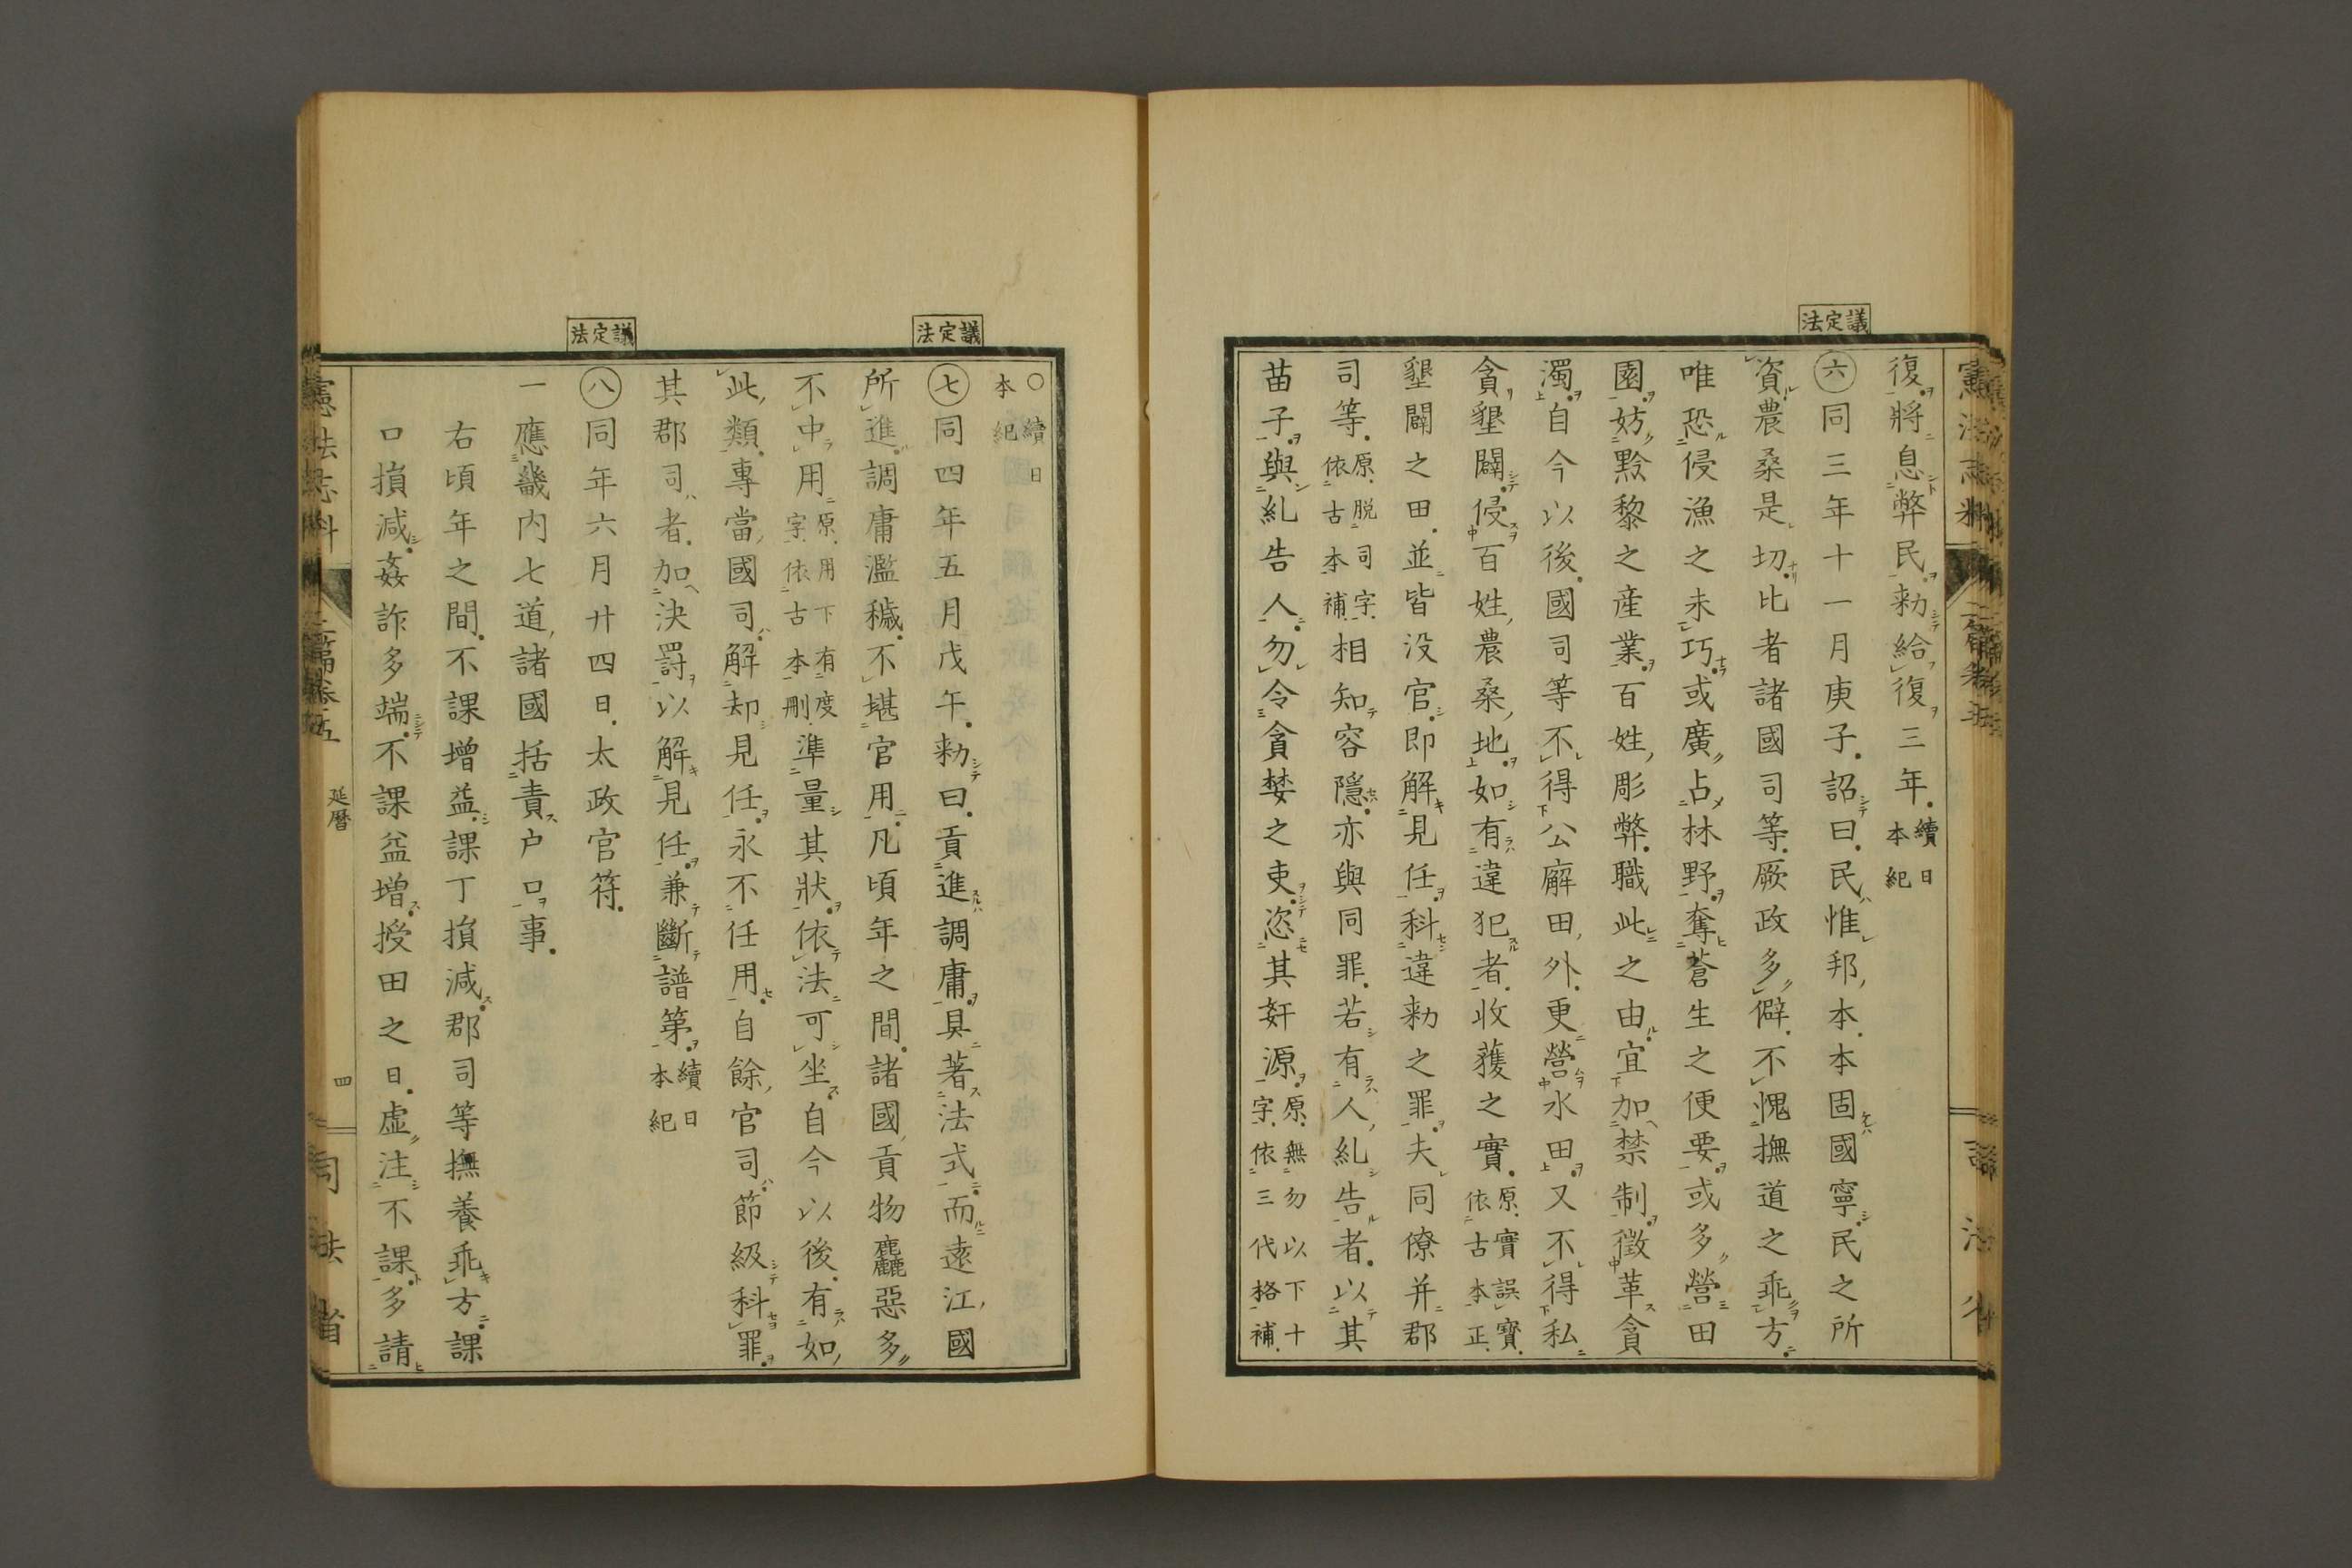 議定法
復將息弊民勅給復三年。續日本紀
㊅同三年十一月庚子。詔曰。民惟邦本。本固國寧。民之所
資農桑是切。比者諸國司等。厥政多僻。不愧撫道之乖方。
唯恐侵漁之未巧。或廣占林野。奪蒼生之便要。或多營田
園。妨黔黎之産業。百姓彫弊。職此之由。宜加禁制徵革貪
濁。自今以後。國司等不得公廨田外。更營水田。又不得私
貪墾闢。侵百姓農桑地。如有違犯者。收獲之實。原實誤寶。依古本正。
墾闢之田。並皆没官。即解見任。科違勅之罪。夫同僚并郡
司等。原脱司字。依古本補。相知容隱。亦與同罪。若有人糺告者。以其
苗子。與糺告人。勿令貪婪之吏。恣其奸源。原無勿以下十字。依三代格補。
議定法
議定法
○續日本紀
㊆同四年五月戊午。勅曰。貢進調庸。具著法式。而遠江國
所進調庸濫穢。不堪官用。凡頃年之間。諸國貢物麤惡多
不中用原用下有度字。依古本刪。準量其狀。依法可坐。自今以後。有如
此類。專當國司。解却見任。永不任用。自餘官司。節級科罪。
其郡司者。加決罸。以解見任。兼斷譜第。續日本紀
㊇同年六月廿四日。太政官符。
一應畿内七道諸國括責户口事。
右頃年之間。不課增益。課丁損減。郡司等撫養乖方。課
口損減。姦詐多端。不課益增。授田之日。虚注不課。多請
憲法志料
三篇卷五
延暦
四
司法省